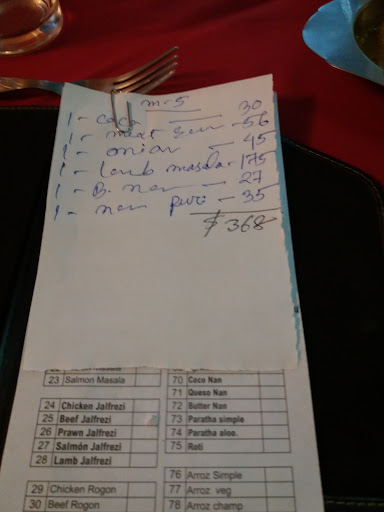 m-5
1 - coca 30
1 - meat 56
1 - 45
1 - lamb masala - 175
1 - B. nan - 27
1 - nan puri - 35
$ 368
23 Salmon Masala
24 Chicken Jalfrezi
25 Beef Jalfrezi
26 Prawn Jalfrezi
27 Salmón Jalfrezi
28 Lamb Jalfrezi
29 Chicken Rogon
30 Beef Rogon
70 Coco Nan
71 Queso Nan
72 Butter Nan
73 Paratha simple
74 Paratha aloo.
75 Roti
76 Arroz Simple
77 Arroz veg
78 Arroz champ